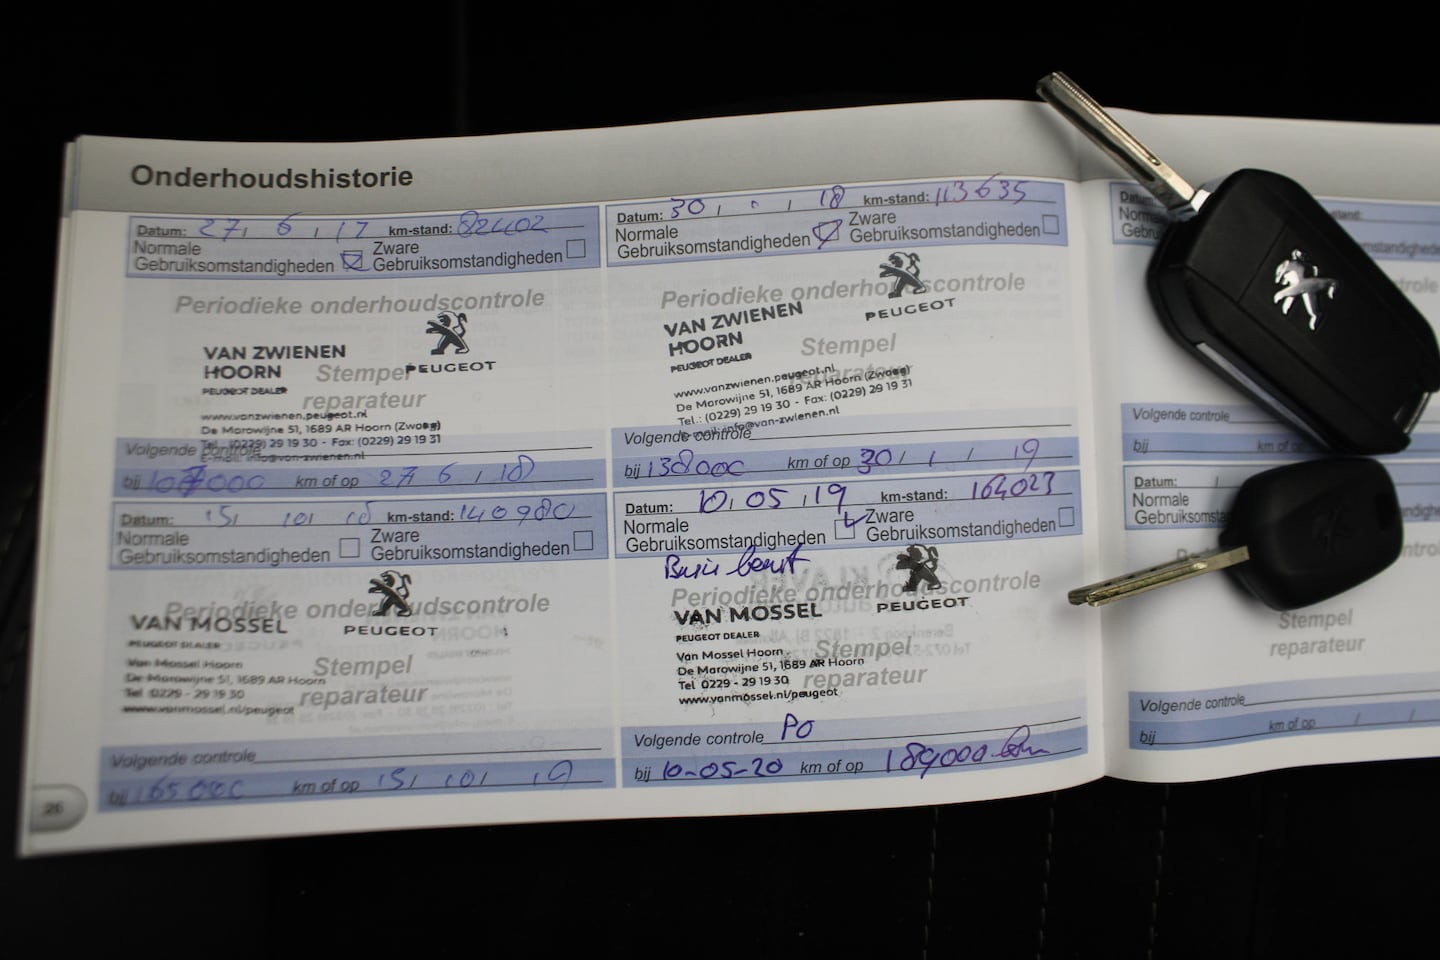 Onderhoudshistorie
Datum: 27, 6, 17 km-stand: 82402
Normale
Gebruiksomstandigheden
Zware
Gebruiksomstandigheden
Periodieke onderhoudscontrole
PEUGEOT
VAN ZWIENEN
HOORN
PEUGEOT DEALER
Stempel
reparateur
www.vanzwienen.peugeot.nl
De Marowijne 51, 1689 AR Hoorn (Zwaag)
Tel.: (0229) 29 19 30 - Fax: (0229) 29 19 31
E-mail: info@van-zwienen.nl
Volgende controle
bij 107000 km of op 27 6, 18
Datum: 30, , 18 km-stand: 113635
Normale
Gebruiksomstandigheden
Zware
Gebruiksomstandigheden
Periodieke onderhoudscontrole
PEUGEOT
VAN ZWIENEN
HOORN
PEUGEOT DEALER
Stempel
reparateur
www.vanzwienen.peugeot.nl
De Marowijne 51, 1689 AR Hoorn (Zwaag)
Tel.: (0229) 29 19 30 - Fax: (0229) 29 19 31
E-mail: info@van-zwienen.nl
Volgende controle
bij 138000 km of op 30/ 1 / 19
Datum: 15, 10, 18 km-stand: 140980
Normale
Gebruiksomstandigheden
Zware
Gebruiksomstandigheden
Periodieke onderhoudscontrole
PEUGEOT
VAN MOSSEL
PEUGEOT DEALER
Van Mossel Hoorn
De Marowijne 51, 1689 AR Hoorn
Tel 0229 - 29 19 30
www.vanmossel.nl/peugeot
Stempel
reparateur
Volgende controle
bij 165000 km of op 15, 10, 19
Datum: 10, 05, 19 km-stand: 164023
Normale
Gebruiksomstandigheden
Zware
Gebruiksomstandigheden
Periodieke onderhoudscontrole
PEUGEOT
VAN MOSSEL
PEUGEOT DEALER
Van Mossel Hoorn
De Marowijne 51, 1689 AR Hoorn
Tel 0229 - 29 19 30
www.vanmossel.nl/peugeot
Stempel
reparateur
Volgende controle PO
bij 10-05-20 km of op 189000 km
26
Volgende controle
bij km of op
Datum:
Normale
Gebruiksomsta
Stempel
reparateur
Volgende controle
bij km of op / /